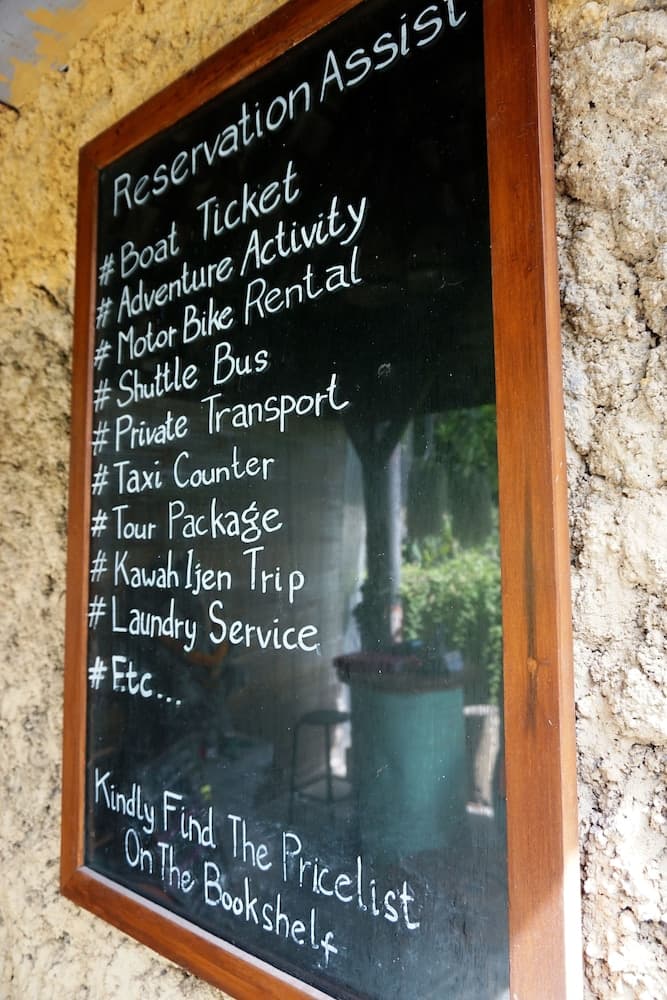 Reservation Assist
# Boat Ticket
# Adventure Activity
# Motor Bike Rental
# Shuttle Bus
# Private Transport
# Taxi Counter
# Tour Package
# Kawah Ijen Trip
# Laundry Service
# Etc...
Kindly Find The Pricelist
On The Bookshelf